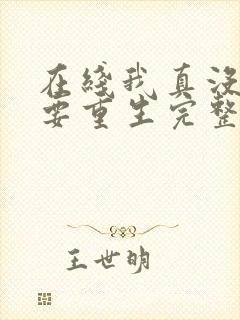 在线我真没
要重生完整
王世明